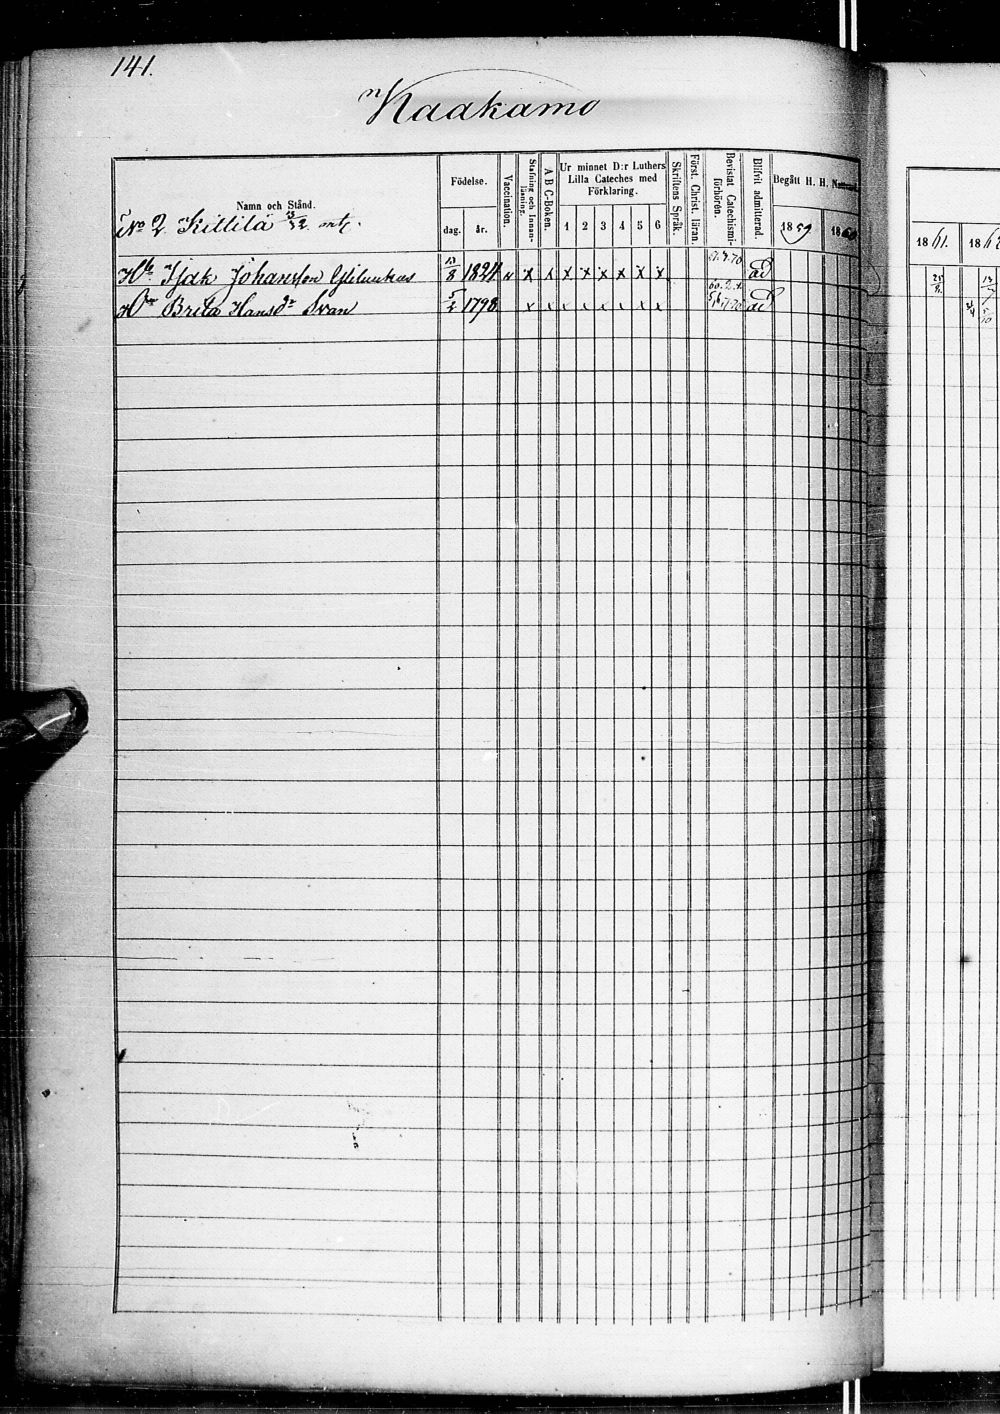 141.
Kaakamo
Namn och Stånd.
Födelse.
dag. år.
Vaccination.
Stafning och Innanläsning.
A B C-Boken.
Ur minnet D:r Luthers Lilla Cateches med Förklaring.
1 2 3 4 5 6
Skriftens Språk.
Först. Christ. läran.
Bevistat Catechismiförhören.
Blifvit admitterad.
Begått H. H. Nattvard
1859 1860
1861. 186
No 2 Kittilä 13/32 mtl.
Isak Johansson 13/8 1824 v x x x x x x x x ad
Brita Hansdr Svan 5/2 1798 x x x x x x x x ad